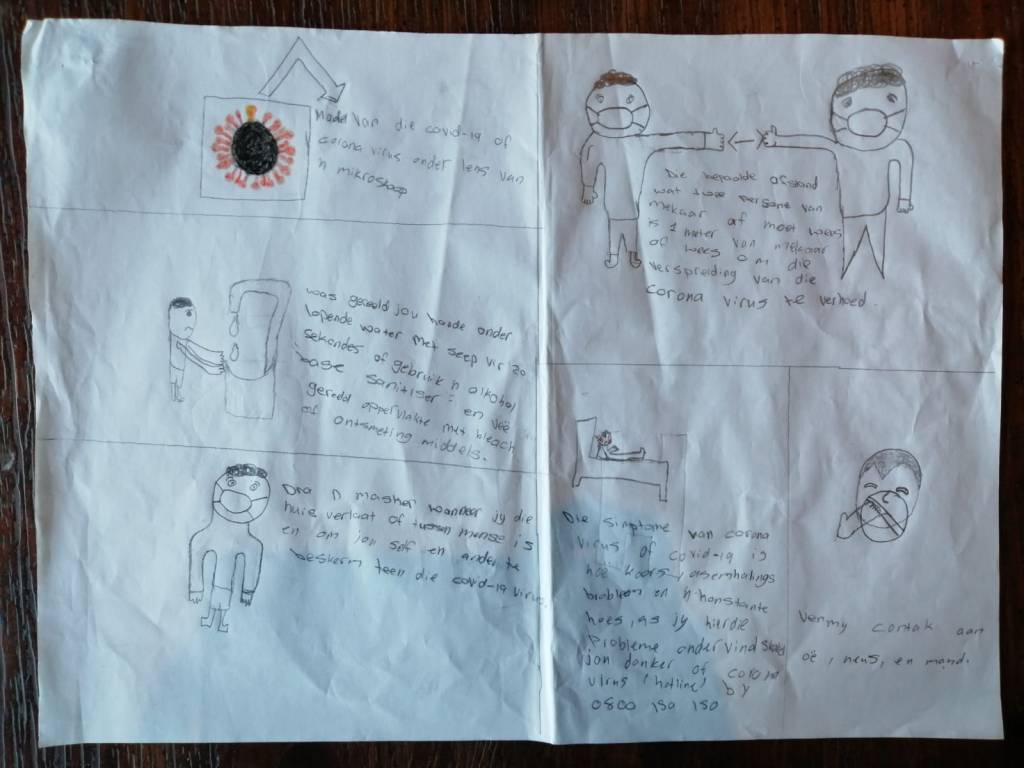 Model van die covid-19 of
corona virus onder lens van
'n mikroskoop
was gereeld jou hande onder
lopende water met seep vir 20
sekondes of gebruik 'n alkohol
base sanitiser : en vee
gereeld oppervlakte met bleach
of ontsmeting middels.
Dra 'n masker wanneer jy die
huis verlaat of tussen mense is
en om jou self en ander te
beskerm teen die covid-19 virus.
Die bepaalde afstand
wat twee persone van
mekaar af moet wees
is 1 meter
of wees van mekaar
om die
verspreiding van die
corona virus te verhoed.
Die Simptome van corona
virus of covid-19 is
hoë koors, asemhalings
probleem en 'n konstante
hoes, as jy hierdie
Probleme ondervind skakel
jou donker of corona
virus (hotline) by
0800 150 150
Vermy contak aan
oë, neus, en mond.